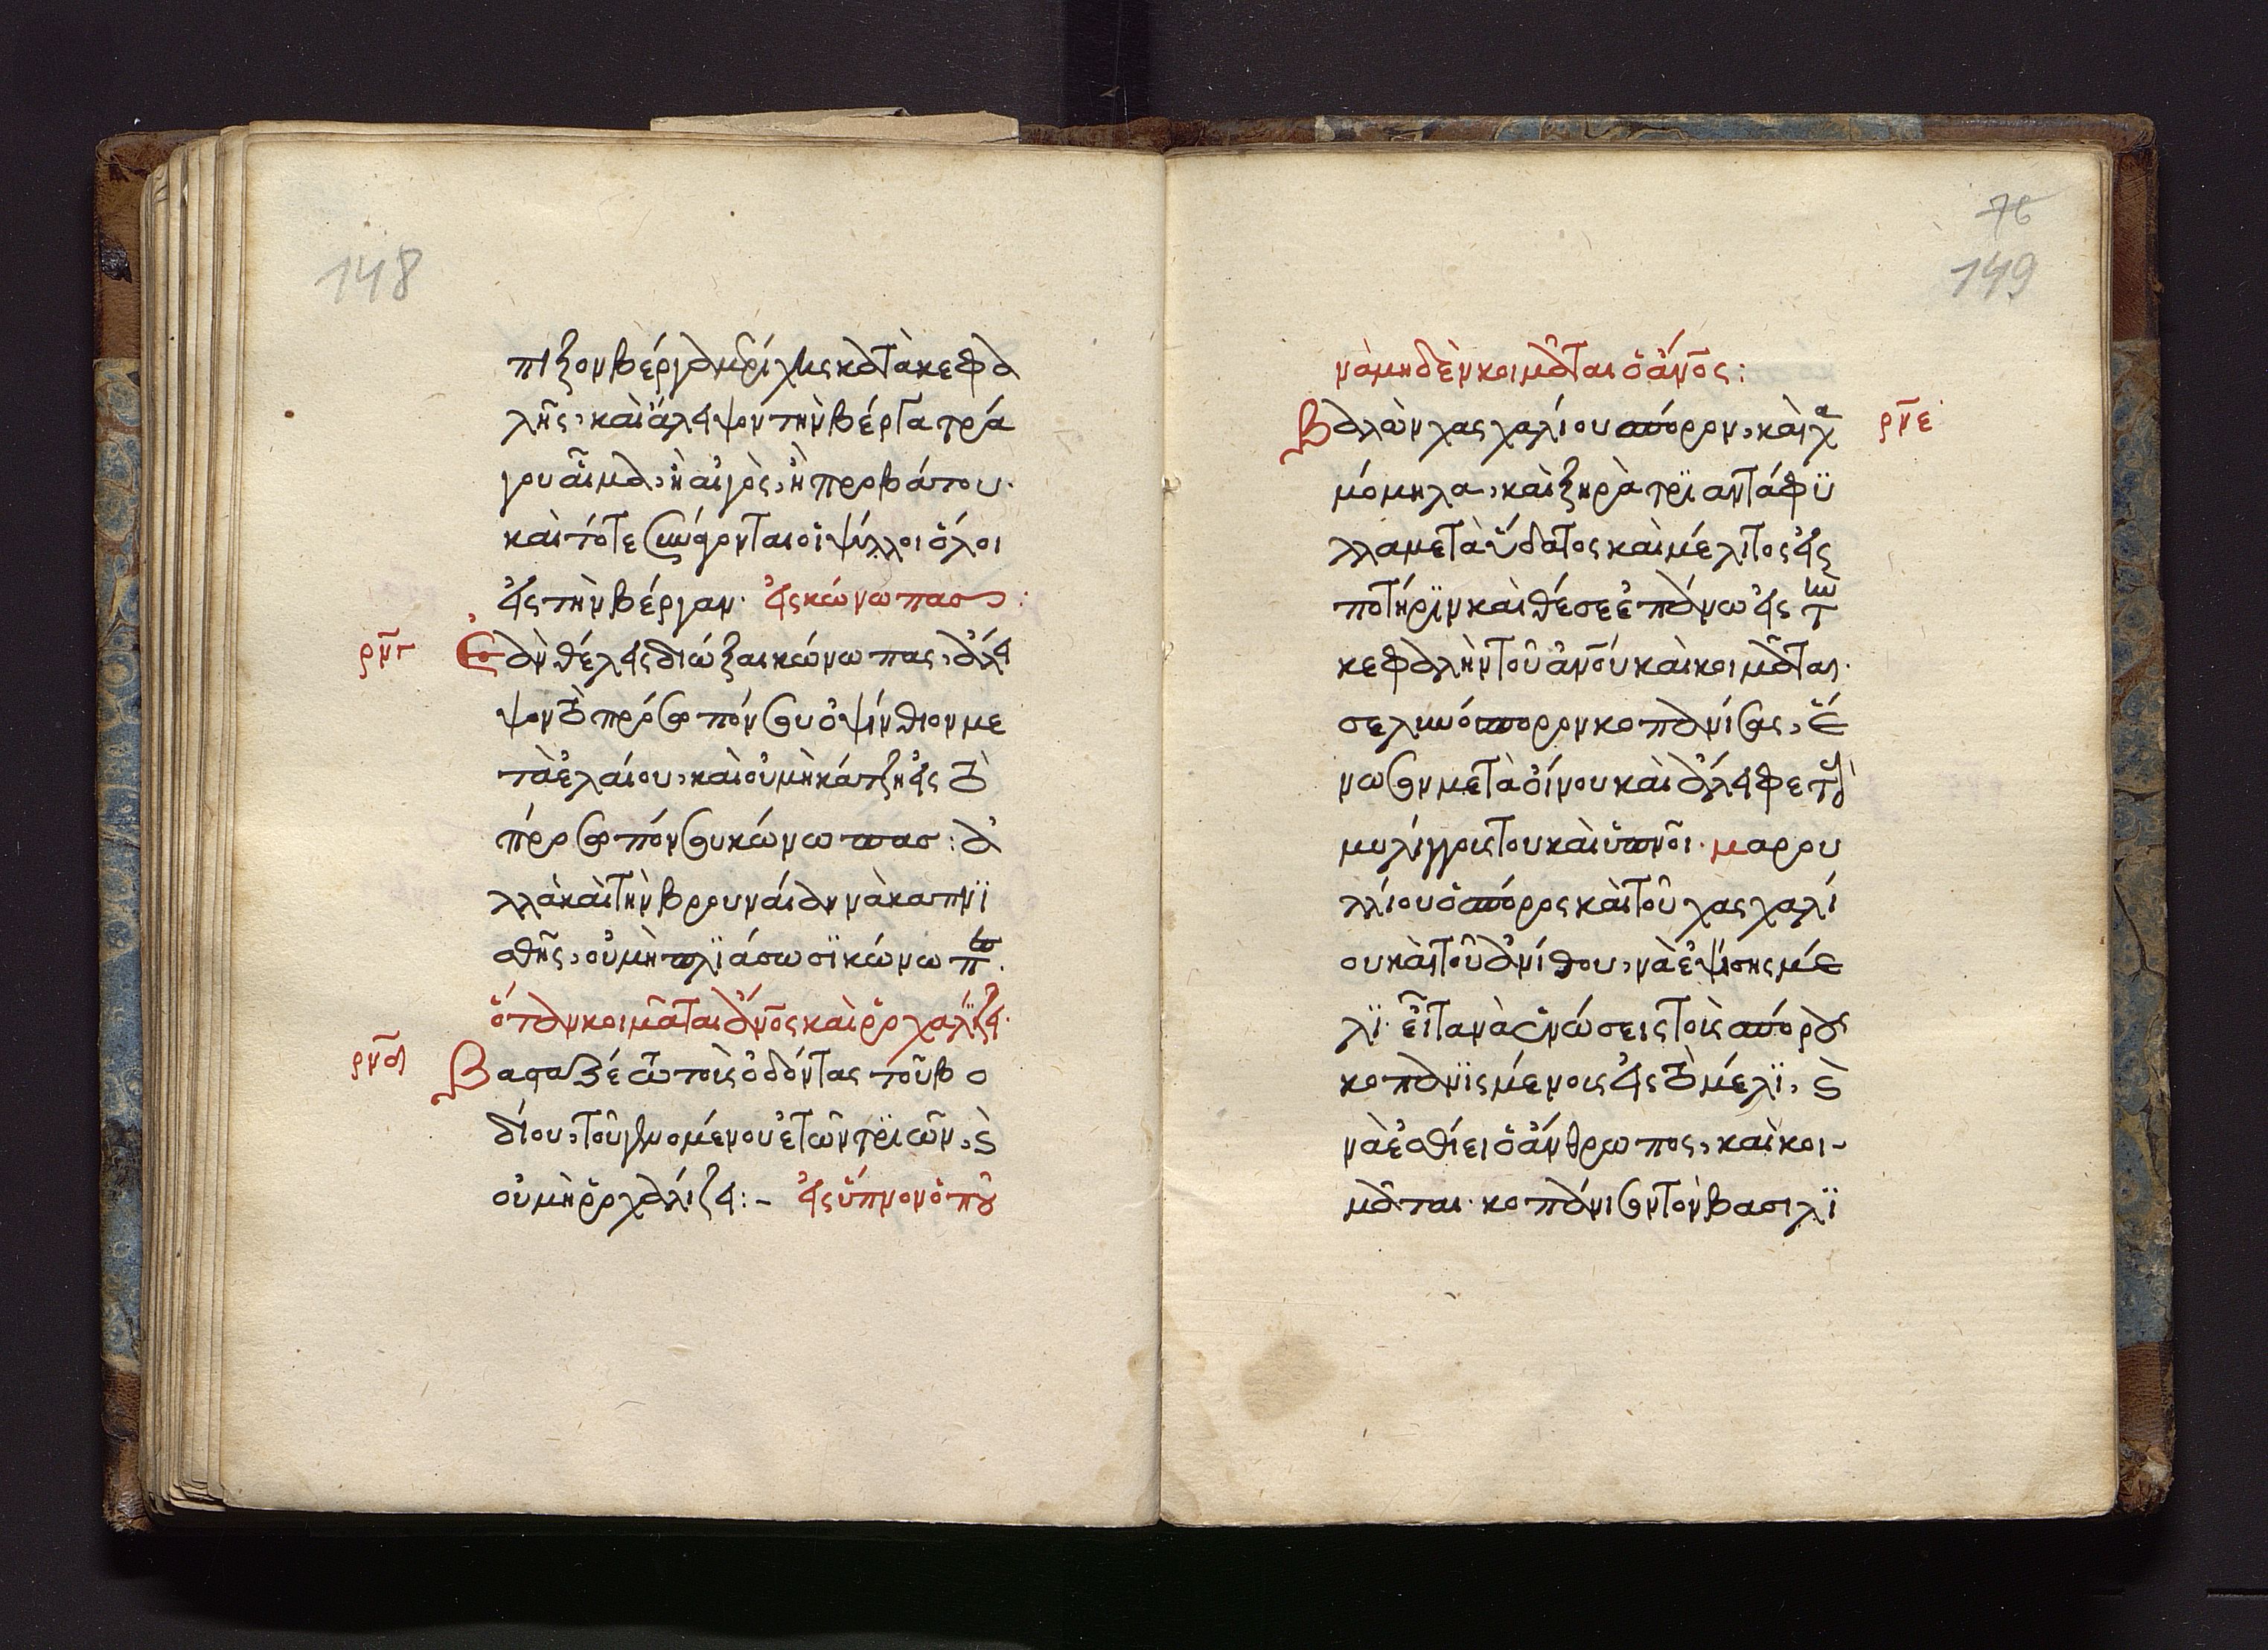 148
πιξον βέργα μυρίχης κατὰ κεφα
λῆς, καὶ ἄλειψον τὴν βέργα τρά
γου αἷμα, ἢ αἰγὸς, ἢ προβάτου.
καὶ τότε σωρεύονται οἱ ψύλλοι ὅλοι
εἰς τὴν βέργαν. εἰς κώνωπας:
ρνγ Ἐὰν θέλεις διώξαι κώνωπας, ἄλει
ψον τὸ πρόσωπόν σου ὀψίνθιον με
τὰ ἐλαίου, καὶ οὐ μὴ κάτζη εἰς τὸ
πρόσωπόν σου κώνωπας: ἀ
λλὰ καὶ τὴν βρουνάιαν νὰ καπνι
σθῆς, οὐ μὴ πλϊάσωσϊ κώνωπ.
ὅταν κοιμᾶται ἄνος καὶ ῥοχαλίζει.
ρνδ Βάσταζέ ὦ τοις ὀδόντας τοῦ βο
δίου, τοῦ γενομένου ἐτῶν τριῶν, καὶ
οὐ μὴ ῥοχαλίζει:- εἰς ὕπνον ὁποῦ
76
149
νὰ μηδὲν κοιμᾶται ὁ ἄνος:
Βαλὼν χασχαλίου σπόρον, καὶ χα ρνε
μόμηλα, καὶ ξηρὰ τριανταφϋ
λλα μετὰ ὕδατος καὶ μέλιτος εἰς
ποτήρϊν καὶ θέσε ἐπάνω εἰς τὼ
κεφαλὴν τοῦ ἀνού καὶ κοιμᾶται.
σελινόσπορον κοπανίσας, ἕ
νωσον μετὰ οἴνου καὶ ἄλειφε τοὺ
μυλίγγοις του καὶ ὑπνοῖ. μαρου
λλίου ὁ σπόρος καὶ τοῦ χασχαλί
ου καὶ τοῦ ἀνίθου, νὰ ἑψήσης μέ
λϊ. εἶτα νὰ ἑνώσεις τοῖς σπόρους
κοπανϊσμένοις εἰς τὸ μέλϊ, καὶ
νὰ ἐσθίει ὁ ἄνθρωπος, καὶ κοι-
μᾶται. κοπάνισον τὸν βασιλϊ